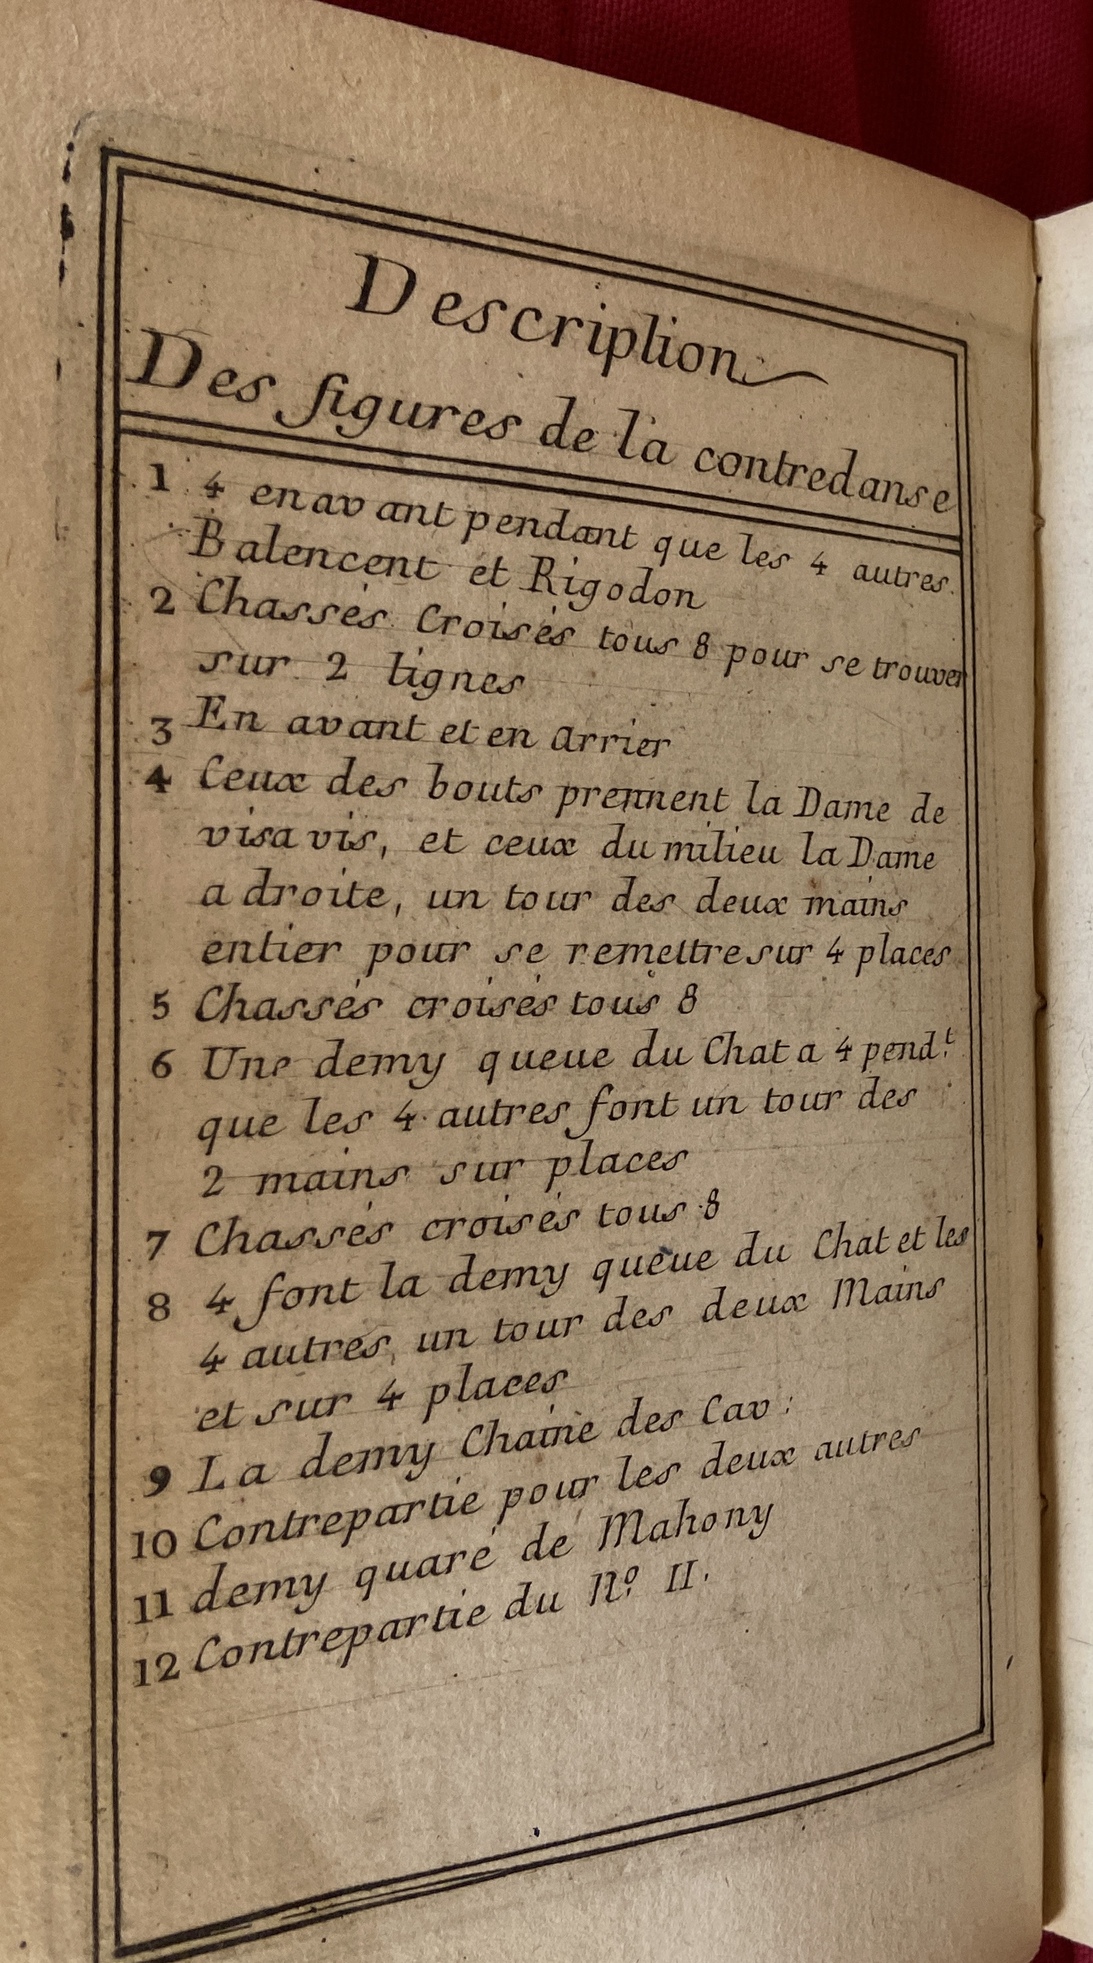 Description
Des figures de la contredanse
1 4 en avant pendant que les 4 autres.
Balencent et Rigodon
2 Chassés Croisés tous 8 pour se trouver
sur 2 lignes
3 En avant et en arrier
4 Ceux des bouts prennent la Dame de
visavis, et ceux du milieu la Dame
a droite, un tour des deux mains
entier pour se remettre sur 4 places
5 Chassés croisés tous 8
6 Une demy queue du Chat a 4 pend.t
que les 4 autres font un tour des
2 mains sur places
7 Chassés croisés tous 8
8 4 font la demy queue du Chat et les
4 autres, un tour des deux Mains
et sur 4 places
9 La demy Chaine des Cav:
10 Contrepartie pour les deux autres
11 demy quaré de Mahony
12 Contrepartie du No. II.